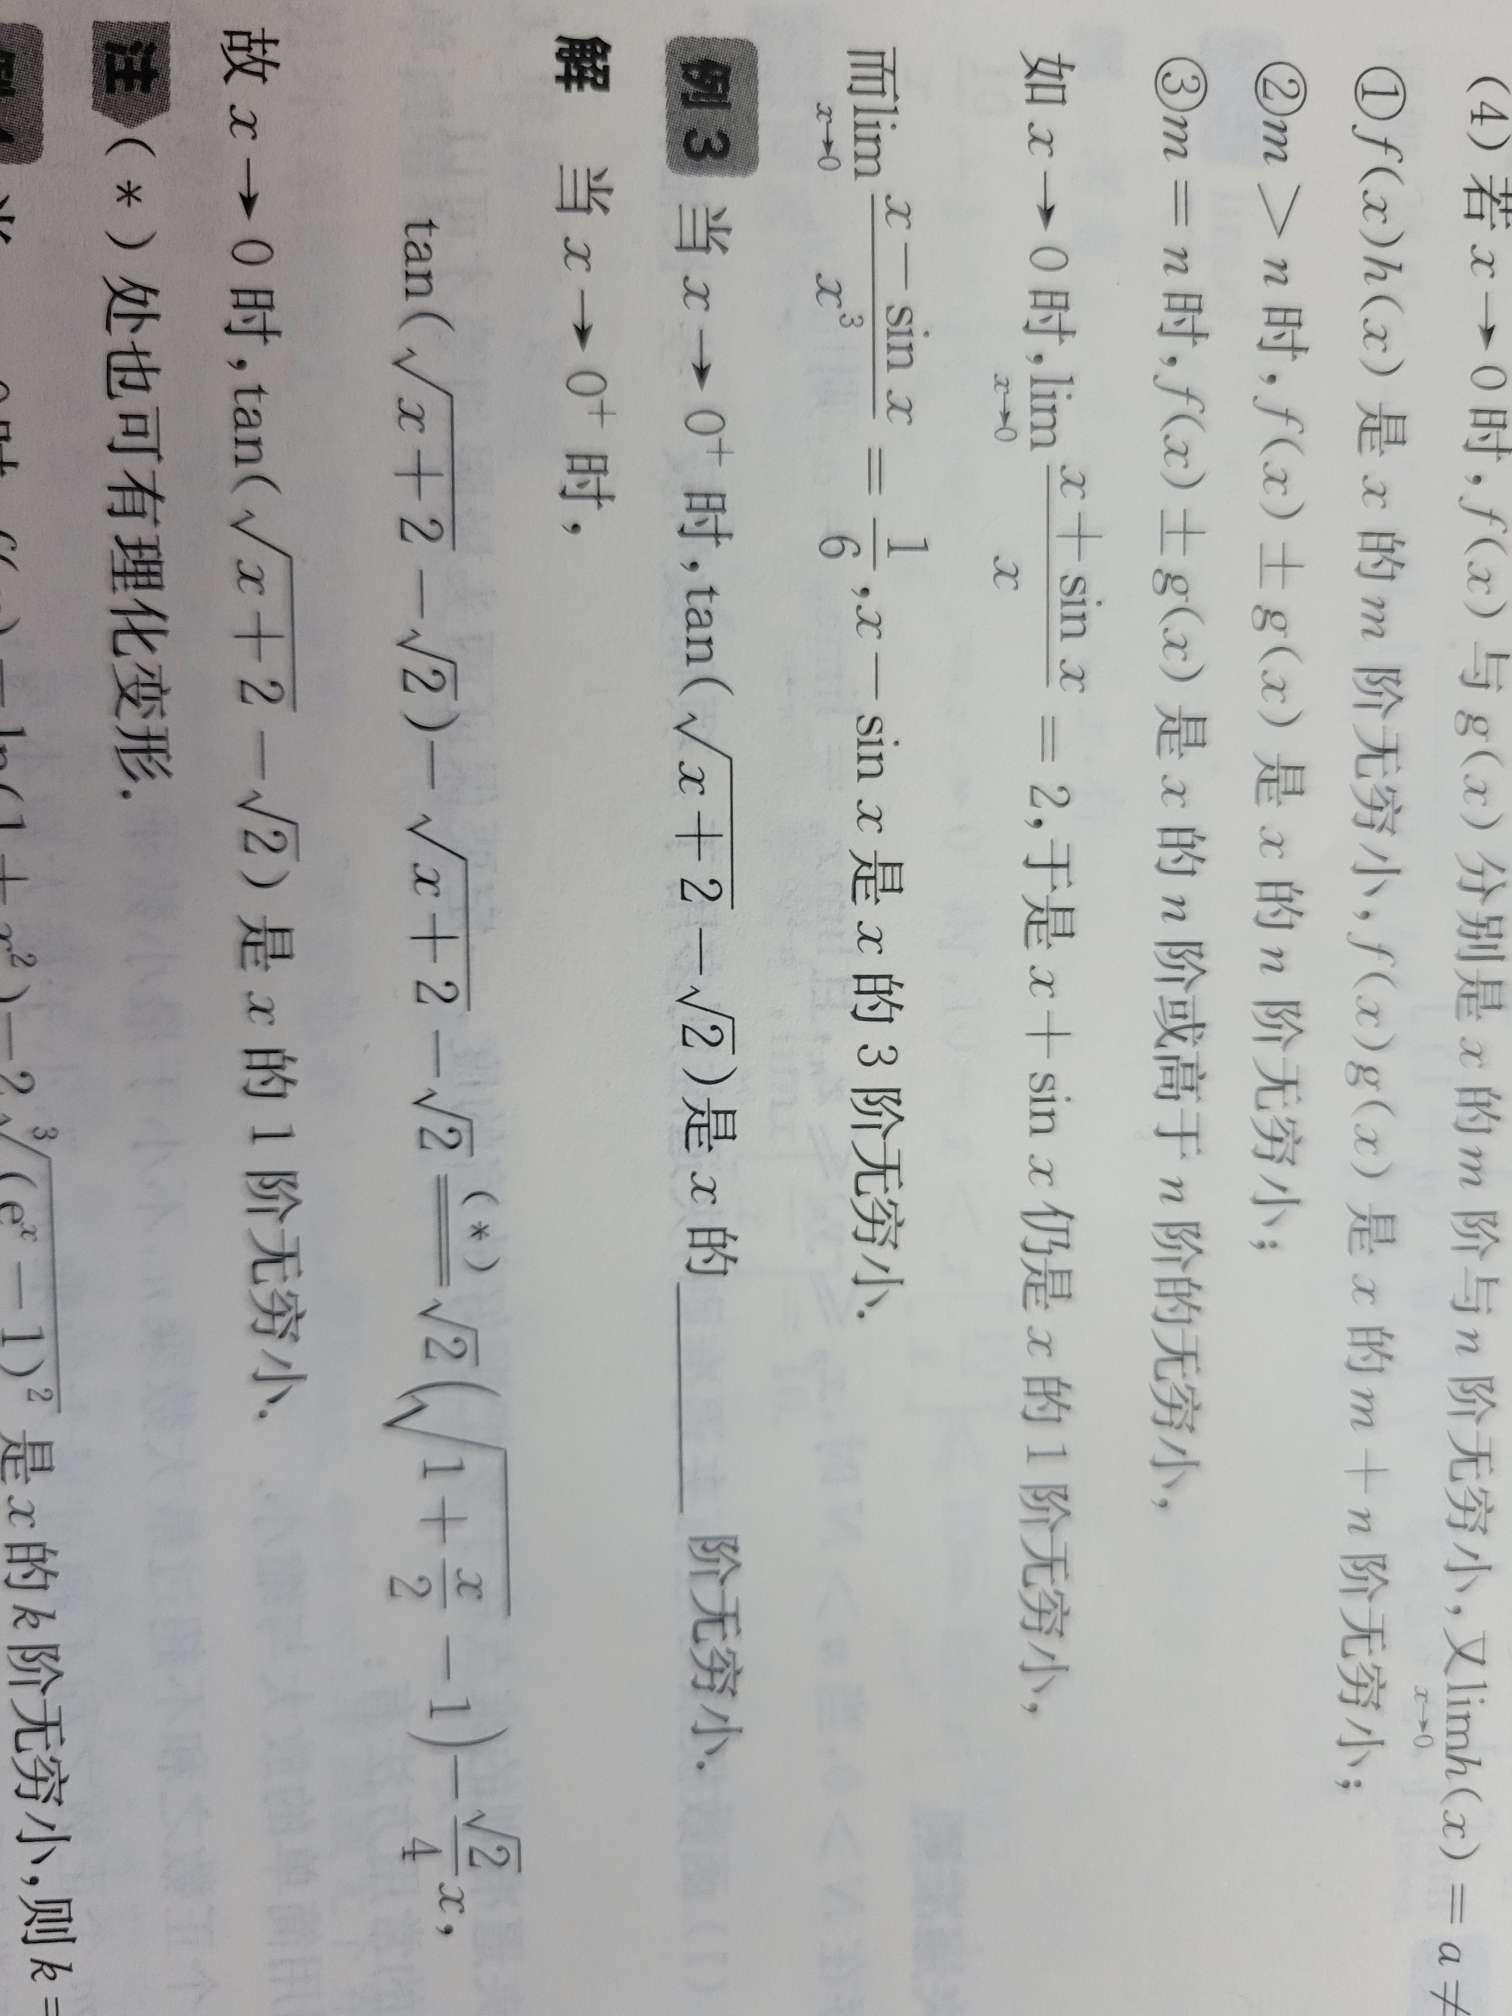 (4) 若 x→0 时, f(x) 与 g(x) 分别是 x 的 m 阶与 n 阶无穷小, 又 lim_{x→0} h(x) = a ≠
① f(x)h(x) 是 x 的 m 阶无穷小, f(x)g(x) 是 x 的 m+n 阶无穷小;
② m > n 时, f(x) ± g(x) 是 x 的 n 阶无穷小;
③ m = n 时, f(x) ± g(x) 是 x 的 n 阶或高于 n 阶的无穷小,
如 x→0 时, lim_{x→0} (x + sin x)/x = 2, 于是 x + sin x 仍是 x 的 1 阶无穷小,
而 lim_{x→0} (x − sin x)/x³ = 1/6, x − sin x 是 x 的 3 阶无穷小.
例 3 当 x→0⁺ 时, tan(√(x+2) − √2) 是 x 的 ______ 阶无穷小.
解 当 x→0⁺ 时,
tan(√(x+2) − √2) ~ √(x+2) − √2 (*)== √2(√(1 + x/2) − 1) ~ (√2/4)x,
故 x→0 时, tan(√(x+2) − √2) 是 x 的 1 阶无穷小.
注 (*) 处也可有理化变形.
− ln(1 + x²) − 2∛((eˣ − 1)²) 是 x 的 k 阶无穷小, 则 k =